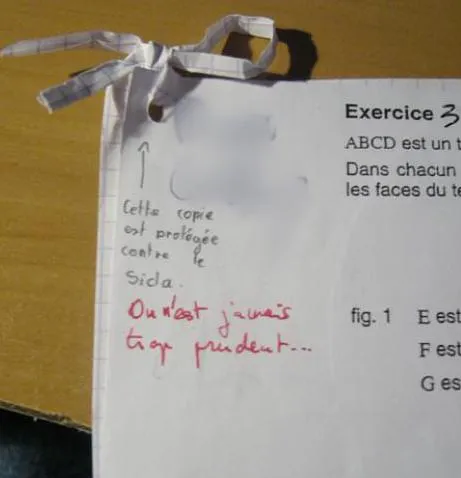 Exercice 3
ABCD est un t
Dans chacun
les faces du te
Cette copie
est protégée
contre le
Sida.
On n'est jamais
trop prudent...
fig. 1 E est
F est
G es